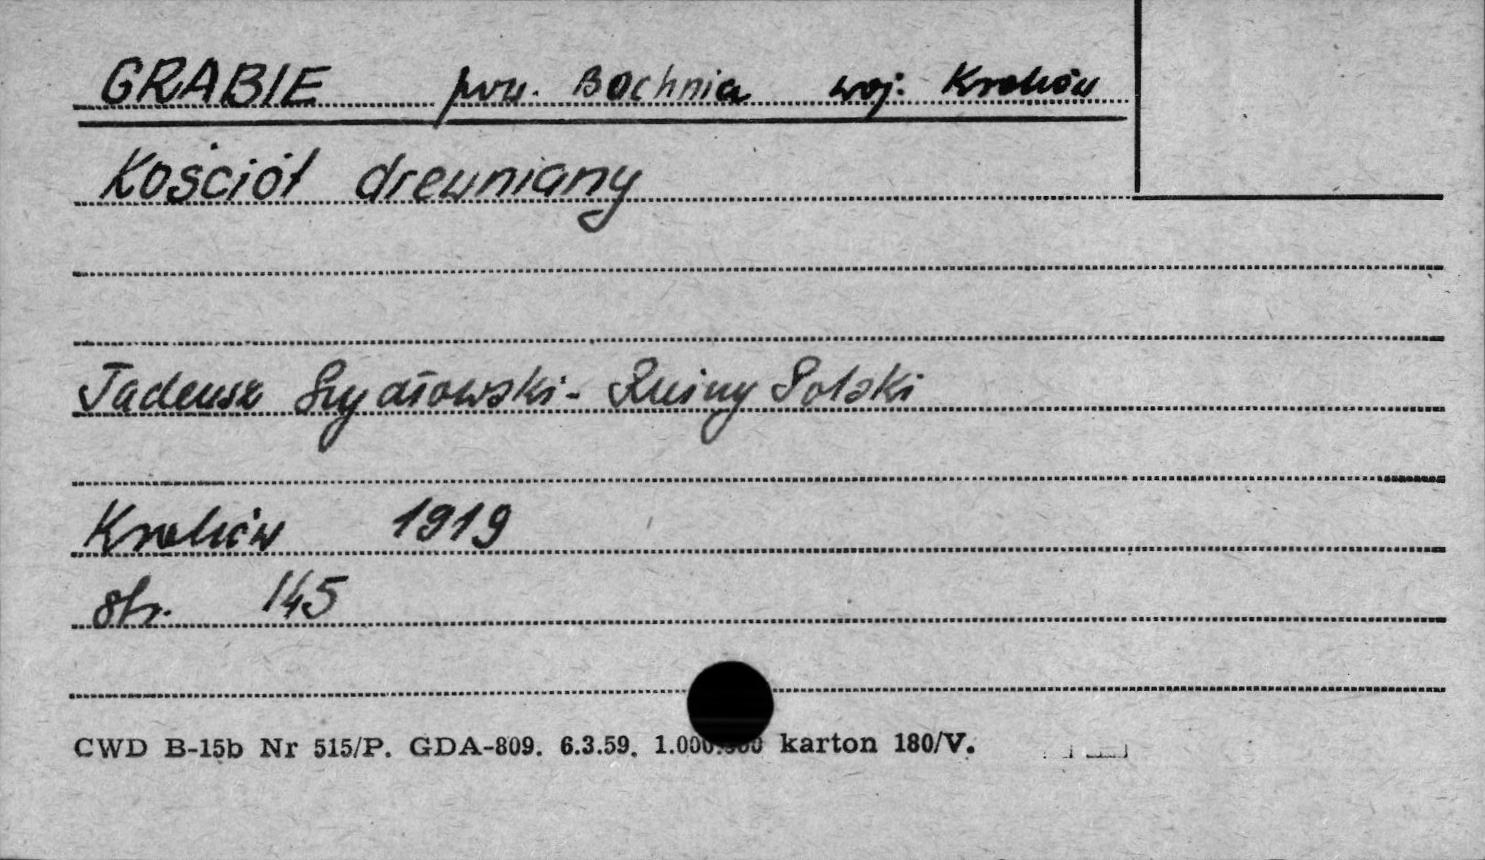 GRABIE pow. Bochnia woj. Kraków
Kościół drewniany
Tadeusz Szydłowski - Ruiny Polski
Kraków 1919
str. 145
CWD B-15b Nr 515/P. GDA-809. 6.3.59. 1.000.000 karton 180/V.